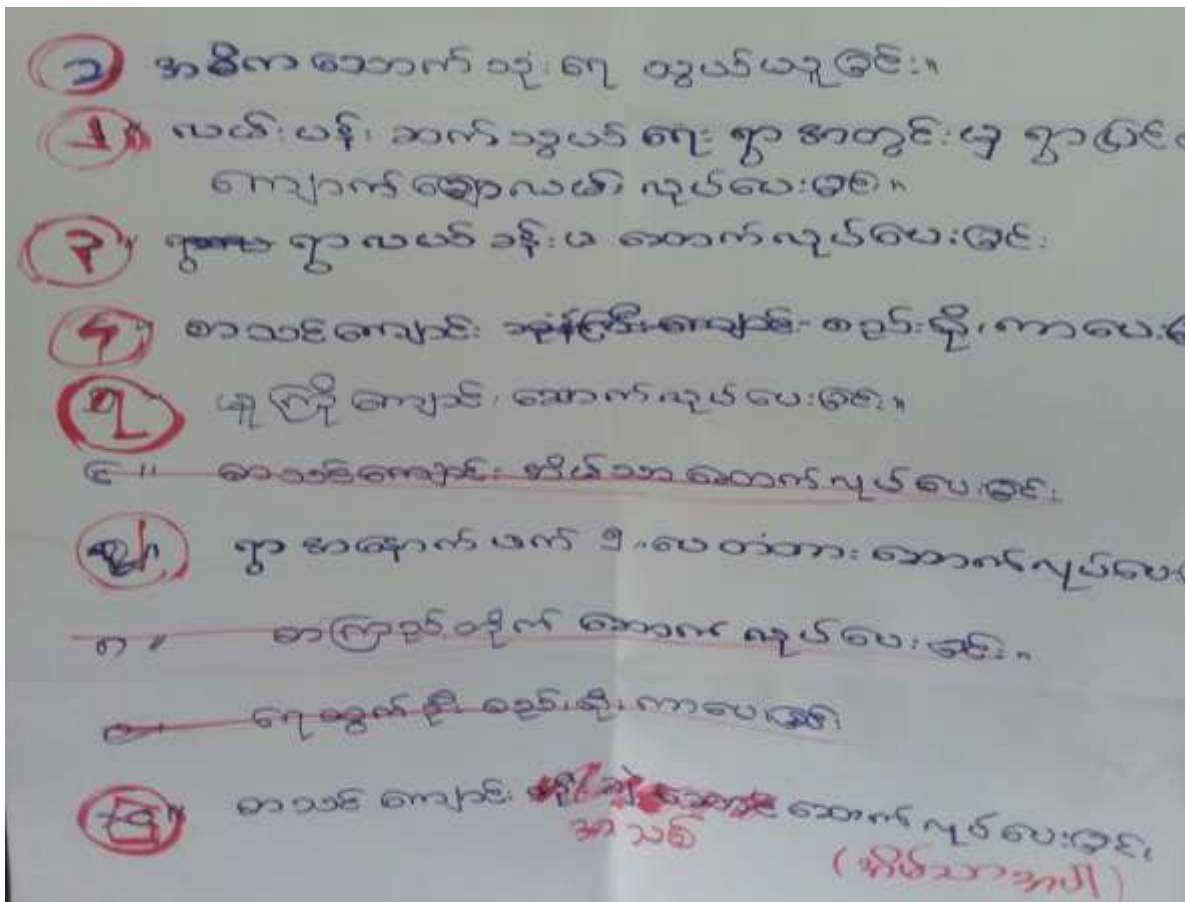 ၁ အဓိက သောက်သုံးရေ သွယ်ယူခြင်း။
၂။ လမ်းပန်း ဆက်သွယ်ရေး ရွာအတွင်းမှ ရွာပြင်
ကျောက်ချောလမ်း လုပ်ပေးခြင်း။
၃။ ရွာလယ်ခန်းမ ဆောက်လုပ်ပေးခြင်း
၄။ စာသင်ကျောင်း ဘုန်းကြီးကျောင်း စည်းရိုးကာပေး
မူကြိုကျောင်း ဆောက်လုပ်ပေးခြင်း။
၆။ စာသင်ကျောင်း အိမ်သာ ဆောက်လုပ်ပေးခြင်း
ရွာအနောက်ဖက် ၅ ပေ တံတား ဆောက်လုပ်ပေး
၈။ စာကြည့်တိုက် ဆောက်လုပ်ပေးခြင်း။
၉။ ရေထွက်ဦး စည်းရိုးကာပေးခြင်း
စာသင်ကျောင်း ဆောက်လုပ်ပေးခြင်း
အသစ်
(အိမ်သာအပါ)